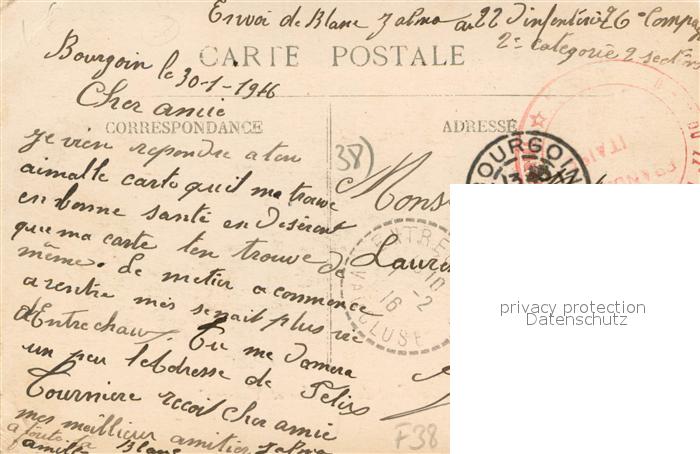 Envoi de Blanc Jalma au 22 d'infenterie 26e Compag
2e categorie 2 section
CARTE POSTALE
Bourgoin le 30-1-1916
Cher amie
CORRESPONDANCE
ADRESSE
je vien repondre a ton
aimalle carte qu'il ma trouve
en bonne santé en deséront
que ma carte ten trouve de
même. Le metier a commence
a rentre mes senait plus vie
d'Entrechaux, Tu me donnera
un peu l'eAdresse de Felix
Tourniere recoit cher amie
mes meillieur amitier Jalma
a toute ta
famille Blanc
38)
Mons
Lauren
BOURGOIN
ENTRE
10 -2
16
VAUCLUSE
F38
privacy protection
Datenschutz